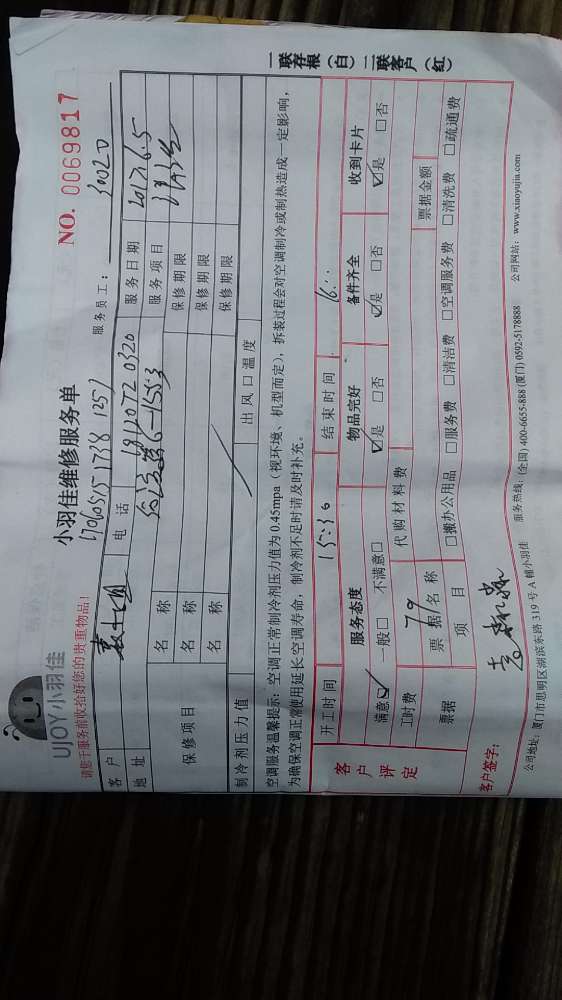 UJOY小羽佳
小羽佳维修服务单
NO. 0069817
请您于服务前收拾好您的贵重物品!
170605151738 1257
服务员工: 30020
一联存根(白)二联客户(红)
客户 电话 18120720320 服务日期 2017.6.5
地址 服务项目
保修项目
名称 保修期限
名称 保修期限
名称 保修期限
制冷剂压力值 出风口温度
空调服务温馨提示: 空调正常制冷剂压力值为0.45mpa(视环境、机型而定), 拆装过程会对空调制冷或制热造成一定影响,
为确保空调正常使用延长空调寿命, 制冷剂不足时请及时补充。
客户评定
开工时间 15:30 结束时间 16:
服务态度 物品完好 备件齐全 收到卡片
满意☑ 一般□ 不满意□ ☑是 □否 ☑是 □否 ☑是 □否
工时费 79 代购材料费
票据 票据名称 票据金额
项目 □搬办公用品 □服务费 □清洁费 □空调服务费 □清洗费 □疏通费
客户签字:
公司地址: 厦门市思明区湖滨东路319号A幢小羽佳 服务热线: (全国) 400-6655-888 (厦门) 0592-5178888 公司网站: www.xiaoyujia.com